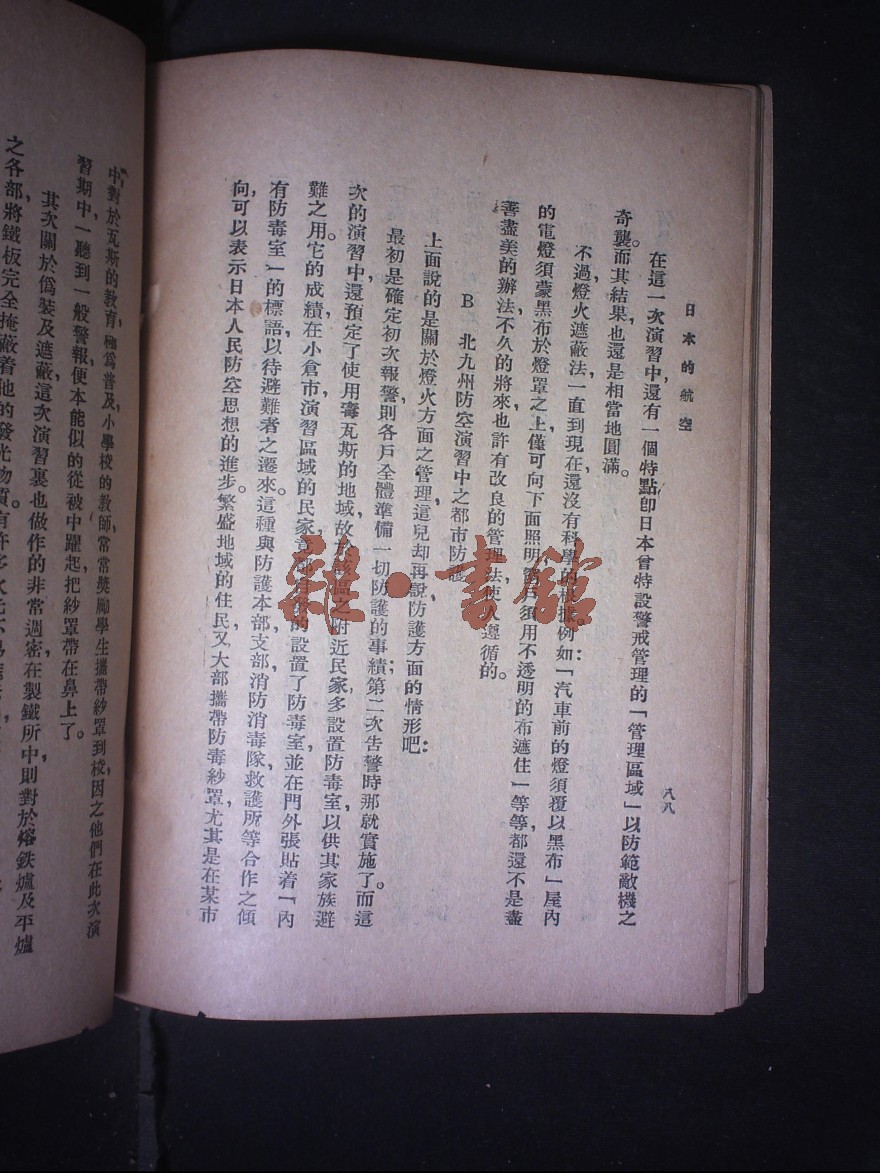 日本的航空
八八
在這一次演習中，還有一個特點，卽日本曾特設警戒管理的「管理區域」以防範敵機之
奇襲。而其結果也還是相當地圓滿。
不過燈火遮蔽法，一直到現在，還沒有科學的根據。例如：「汽車前的燈須覆以黑布」屋內
的電燈須蒙黑布於燈罩之上，僅可向下面照明，窗戶須用不透明的布遮住」等等，都還不是盡
善盡美的辦法。不久的將來，也許有改良的管理法，使人遵循的。
B 北九州防空演習中之都市防護
上面說的是關於燈火方面之管理，這兒却再說防護方面的情形吧：
最初是確定初次報警，則各戶全體準備一切防護的事績；第二次吿警時，那就實施了。而這
次的演習中，還預定了使用毒瓦斯的地域，故於該區之附近民家，多設置防毒室，以供其家族避
難之用。它的成績，在小倉市演習區域的民家，的設置了防毒室，並在門外張貼着「內
有防毒室」的標語，以待避難者之遷來。這種與防護本部支部，消防消毒隊，救護所等合作之傾
向，可以表示日本人民防空思想的進步。繁盛地域的住民，又大部攜帶防毒紗罩，尤其是在某市
中，對於瓦斯的教育，極爲普及，小學校的教師，常常獎勵學生攜帶紗罩到校，因之他們在此次演
習期中，一聽到一般警報，便本能似的從被中躍起，把紗罩帶在鼻上了。
其次關於僞裝及遮蔽，這次演習裏也做作的非常週密，在製鐵所中，則對於熔鉄爐及平爐
之各部，將鐵板完全掩蔽着他的發光物質。有許多
雜·書館